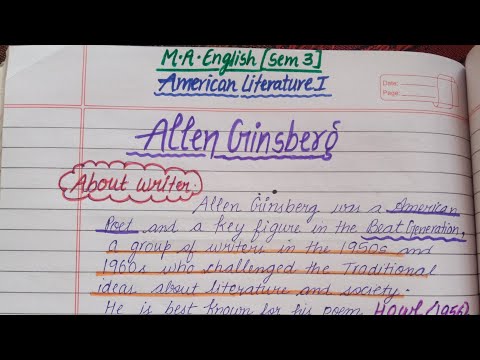 M.A. English [Sem 3]
American Literature I
Date:
Page:
Allen Ginsberg
About writer.
Allen Ginsberg was a American
Poet and a key figure in the Beat Generation,
a group of writers in the 1950s and
1960s who challenged the Traditional
ideas about literature and society.
He is best known for his poem Howl (1956)